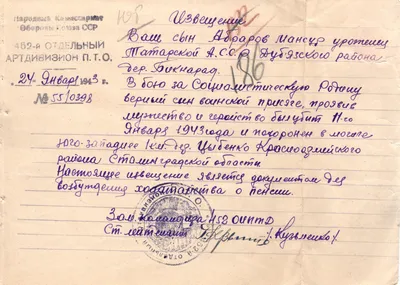 Народный Комиссариат
Обороны Союза ССР
452-й ОТДЕЛЬНЫЙ
АРТДИВИЗИОН П.Т.О.
24 Января 1943
№ 55/0398
186
Извещение
Ваш сын Абраров Мансур уроженец
Татарской А.С.С.Р. Дубязского района
дер.
В бою за Социалистическую Родину
верный сын воинской присяге, проявив
мужество и геройство был убит 11-го
Января 1943 года и похоронен в
юго-западнее 1 км дер Цыбенко Красноармейского
района Сталинградской области
Настоящее извещение является документом для
возбуждения ходатайства о пенсии.
Зам. командира 452 ОИПТД
Ст. лейтенант /Кузьменко/